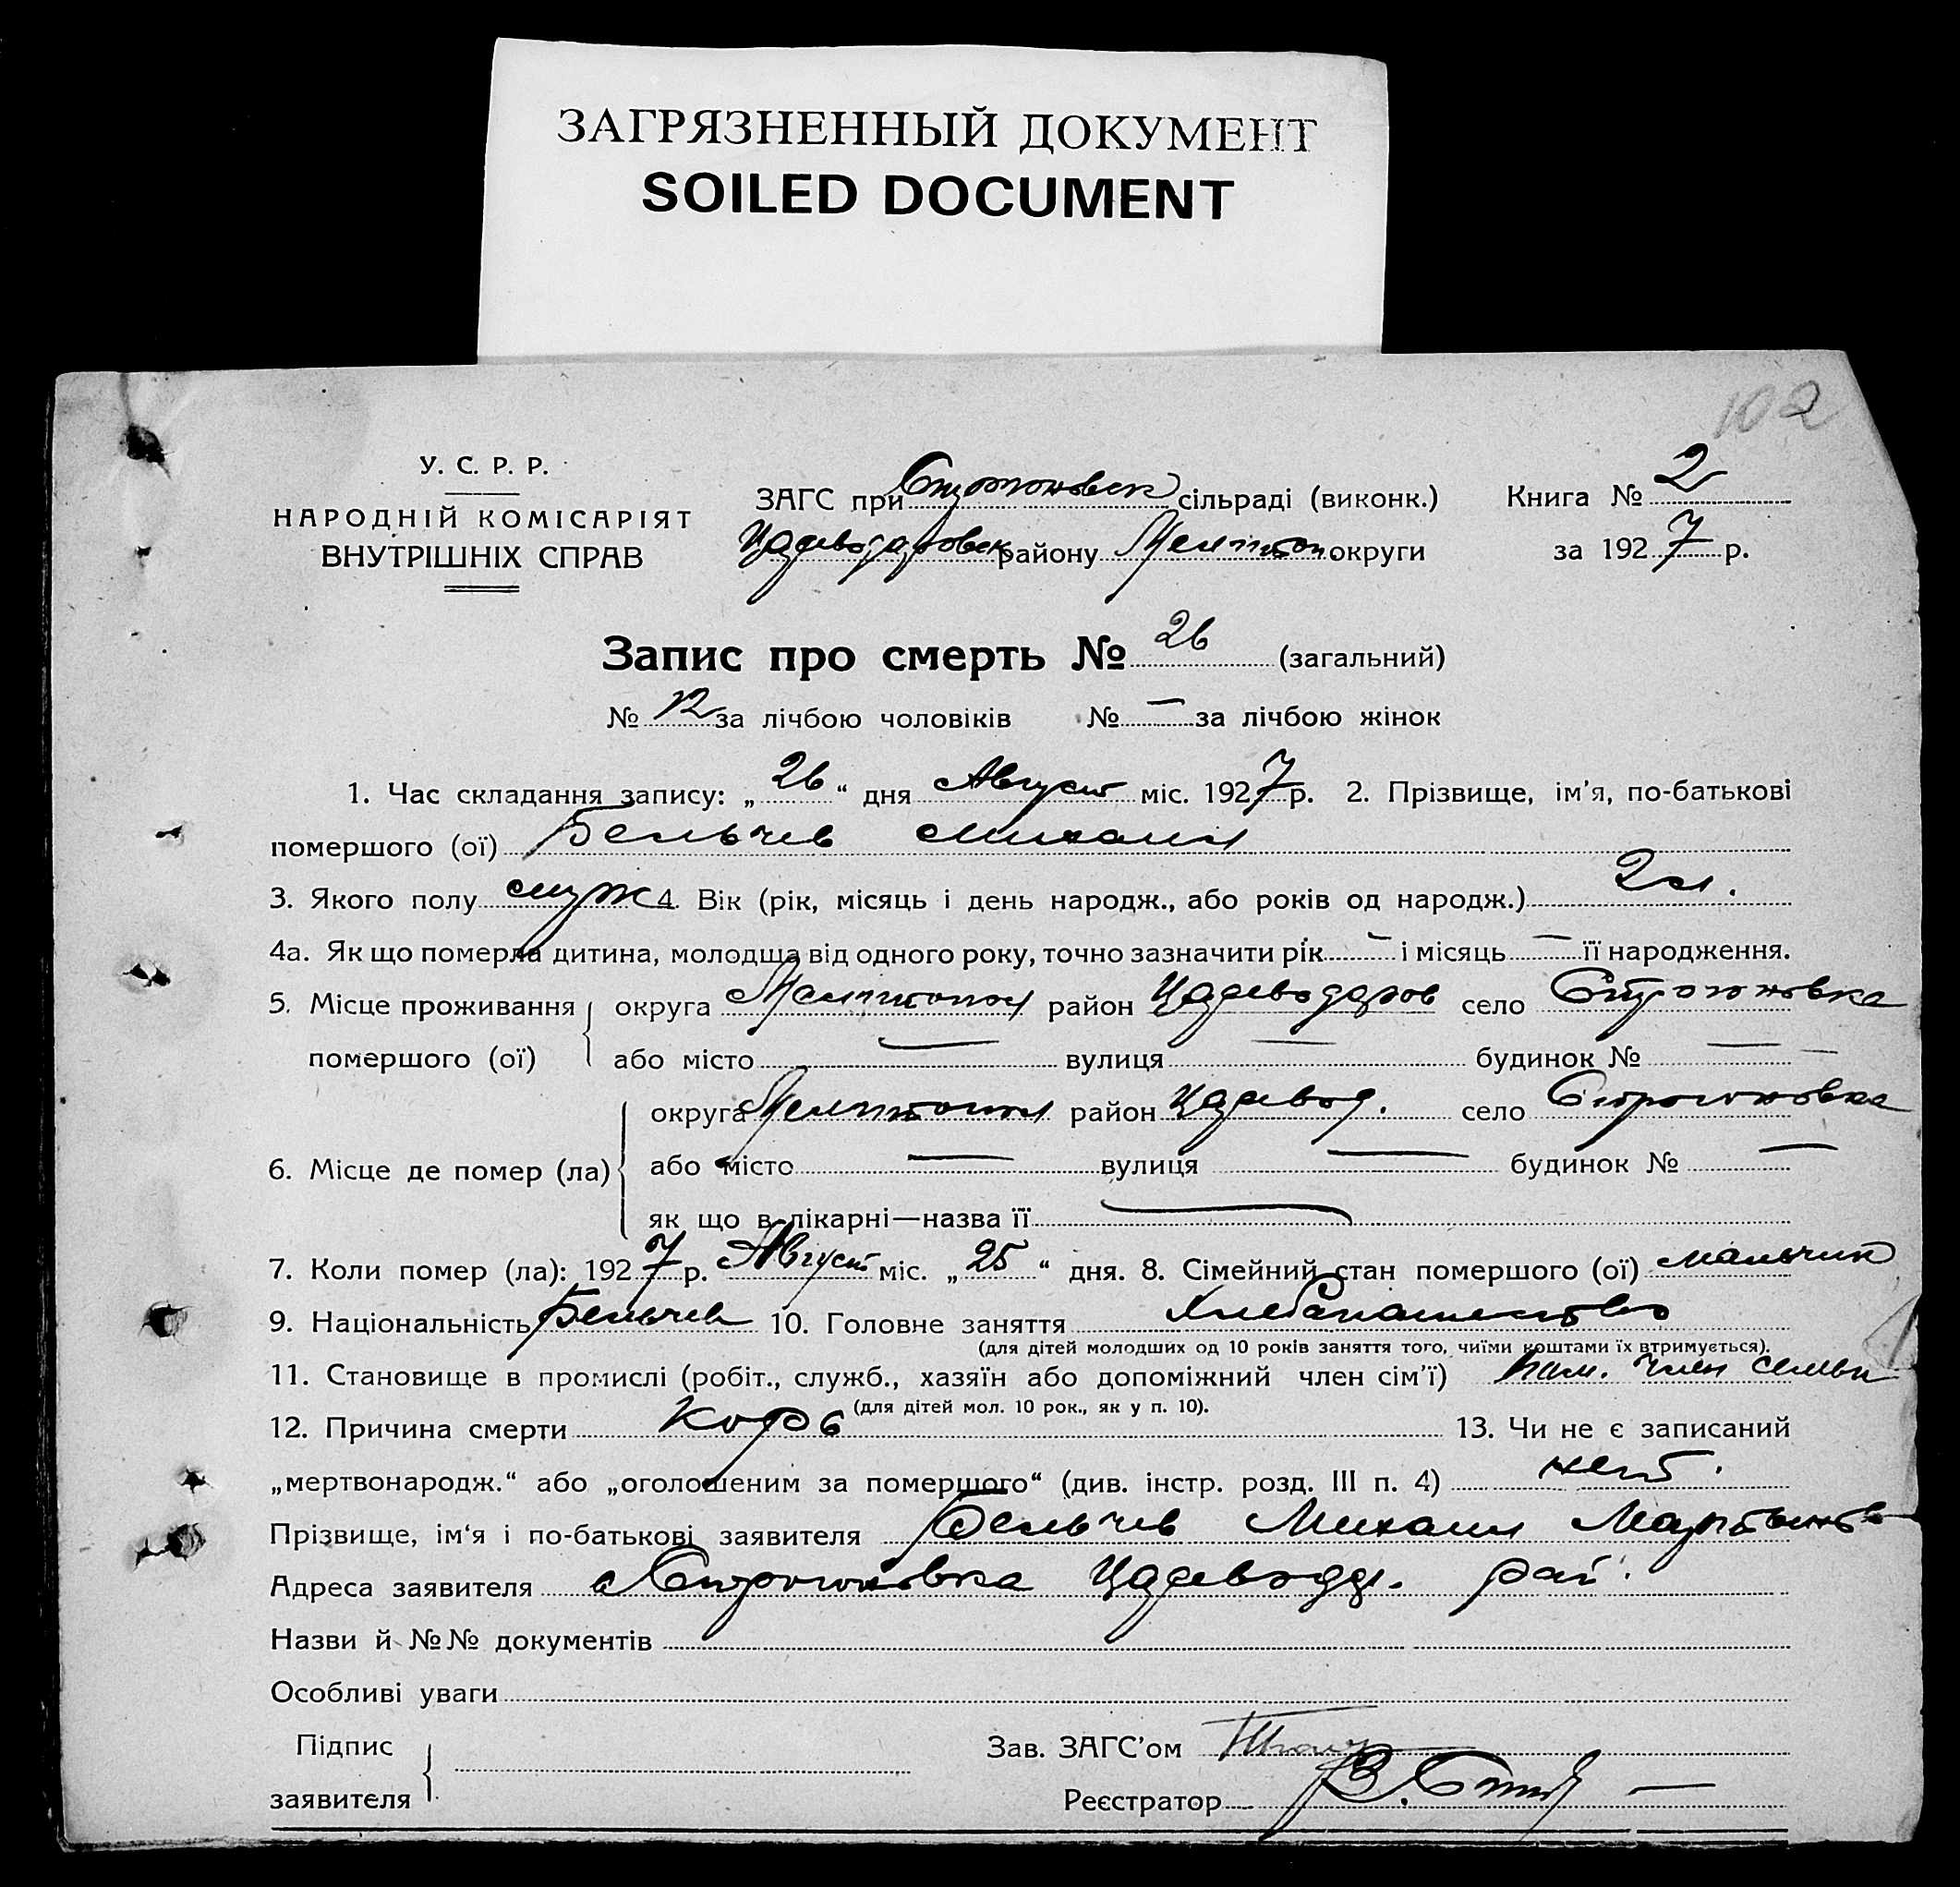 ЗАГРЯЗНЕННЫЙ ДОКУМЕНТ
SOILED DOCUMENT
102
У. С. Р. Р.
НАРОДНІЙ КОМІСАРІЯТ
ВНУТРІШНІХ СПРАВ
ЗАГС при Строгоновск сільраді (виконк.)
Книга № 2
району Мелітоп округи
за 1927 р.
Запис про смерть № 26 (загальний)
№ 12 за лічбою чоловіків № — за лічбою жінок
1. Час складання запису: „26“ дня Август міс. 1927 р. 2. Прізвище, ім'я, по-батькові
помершого (ої) Бельчев Михаил
3. Якого полу муж 4. Вік (рік, місяць і день народж., або років од народж.) 2 л.
4а. Як що померла дитина, молодща від одного року, точно зазначити рік — і місяць — її народження.
5. Місце проживання помершого (ої) округа Мелитопол район Цареводаров село Строгоновка
або місто — вулиця — будинок № —
6. Місце де помер (ла) округа Мелитопол район Царевод. село Строгоновка
або місто — вулиця — будинок № —
як що в лікарні—назва її —
7. Коли помер (ла): 1927 р. Август міс. „25“ дня. 8. Сімейний стан помершого (ої) мальчик
9. Національність Бельчев 10. Головне заняття Хлебопашество
(для дітей молодших од 10 років заняття того, чиїми коштами їх втримується).
11. Становище в промислі (робіт., служб., хазяїн або допоміжний член сім'ї) пом. член семьи
(для дітей мол. 10 рок., як у п. 10).
12. Причина смерти Корь 13. Чи не є записаний
„мертвонародж.“ або „оголошеним за помершого“ (див. інстр. розд. III п. 4) нет.
Прізвище, ім'я і по-батькові заявителя Бельчев Михаил
Адреса заявителя Строгоновка Цареводар. рай.
Назви й №№ документів
Особливі уваги
Підпис заявителя
Зав. ЗАГС'ом
Реєстратор